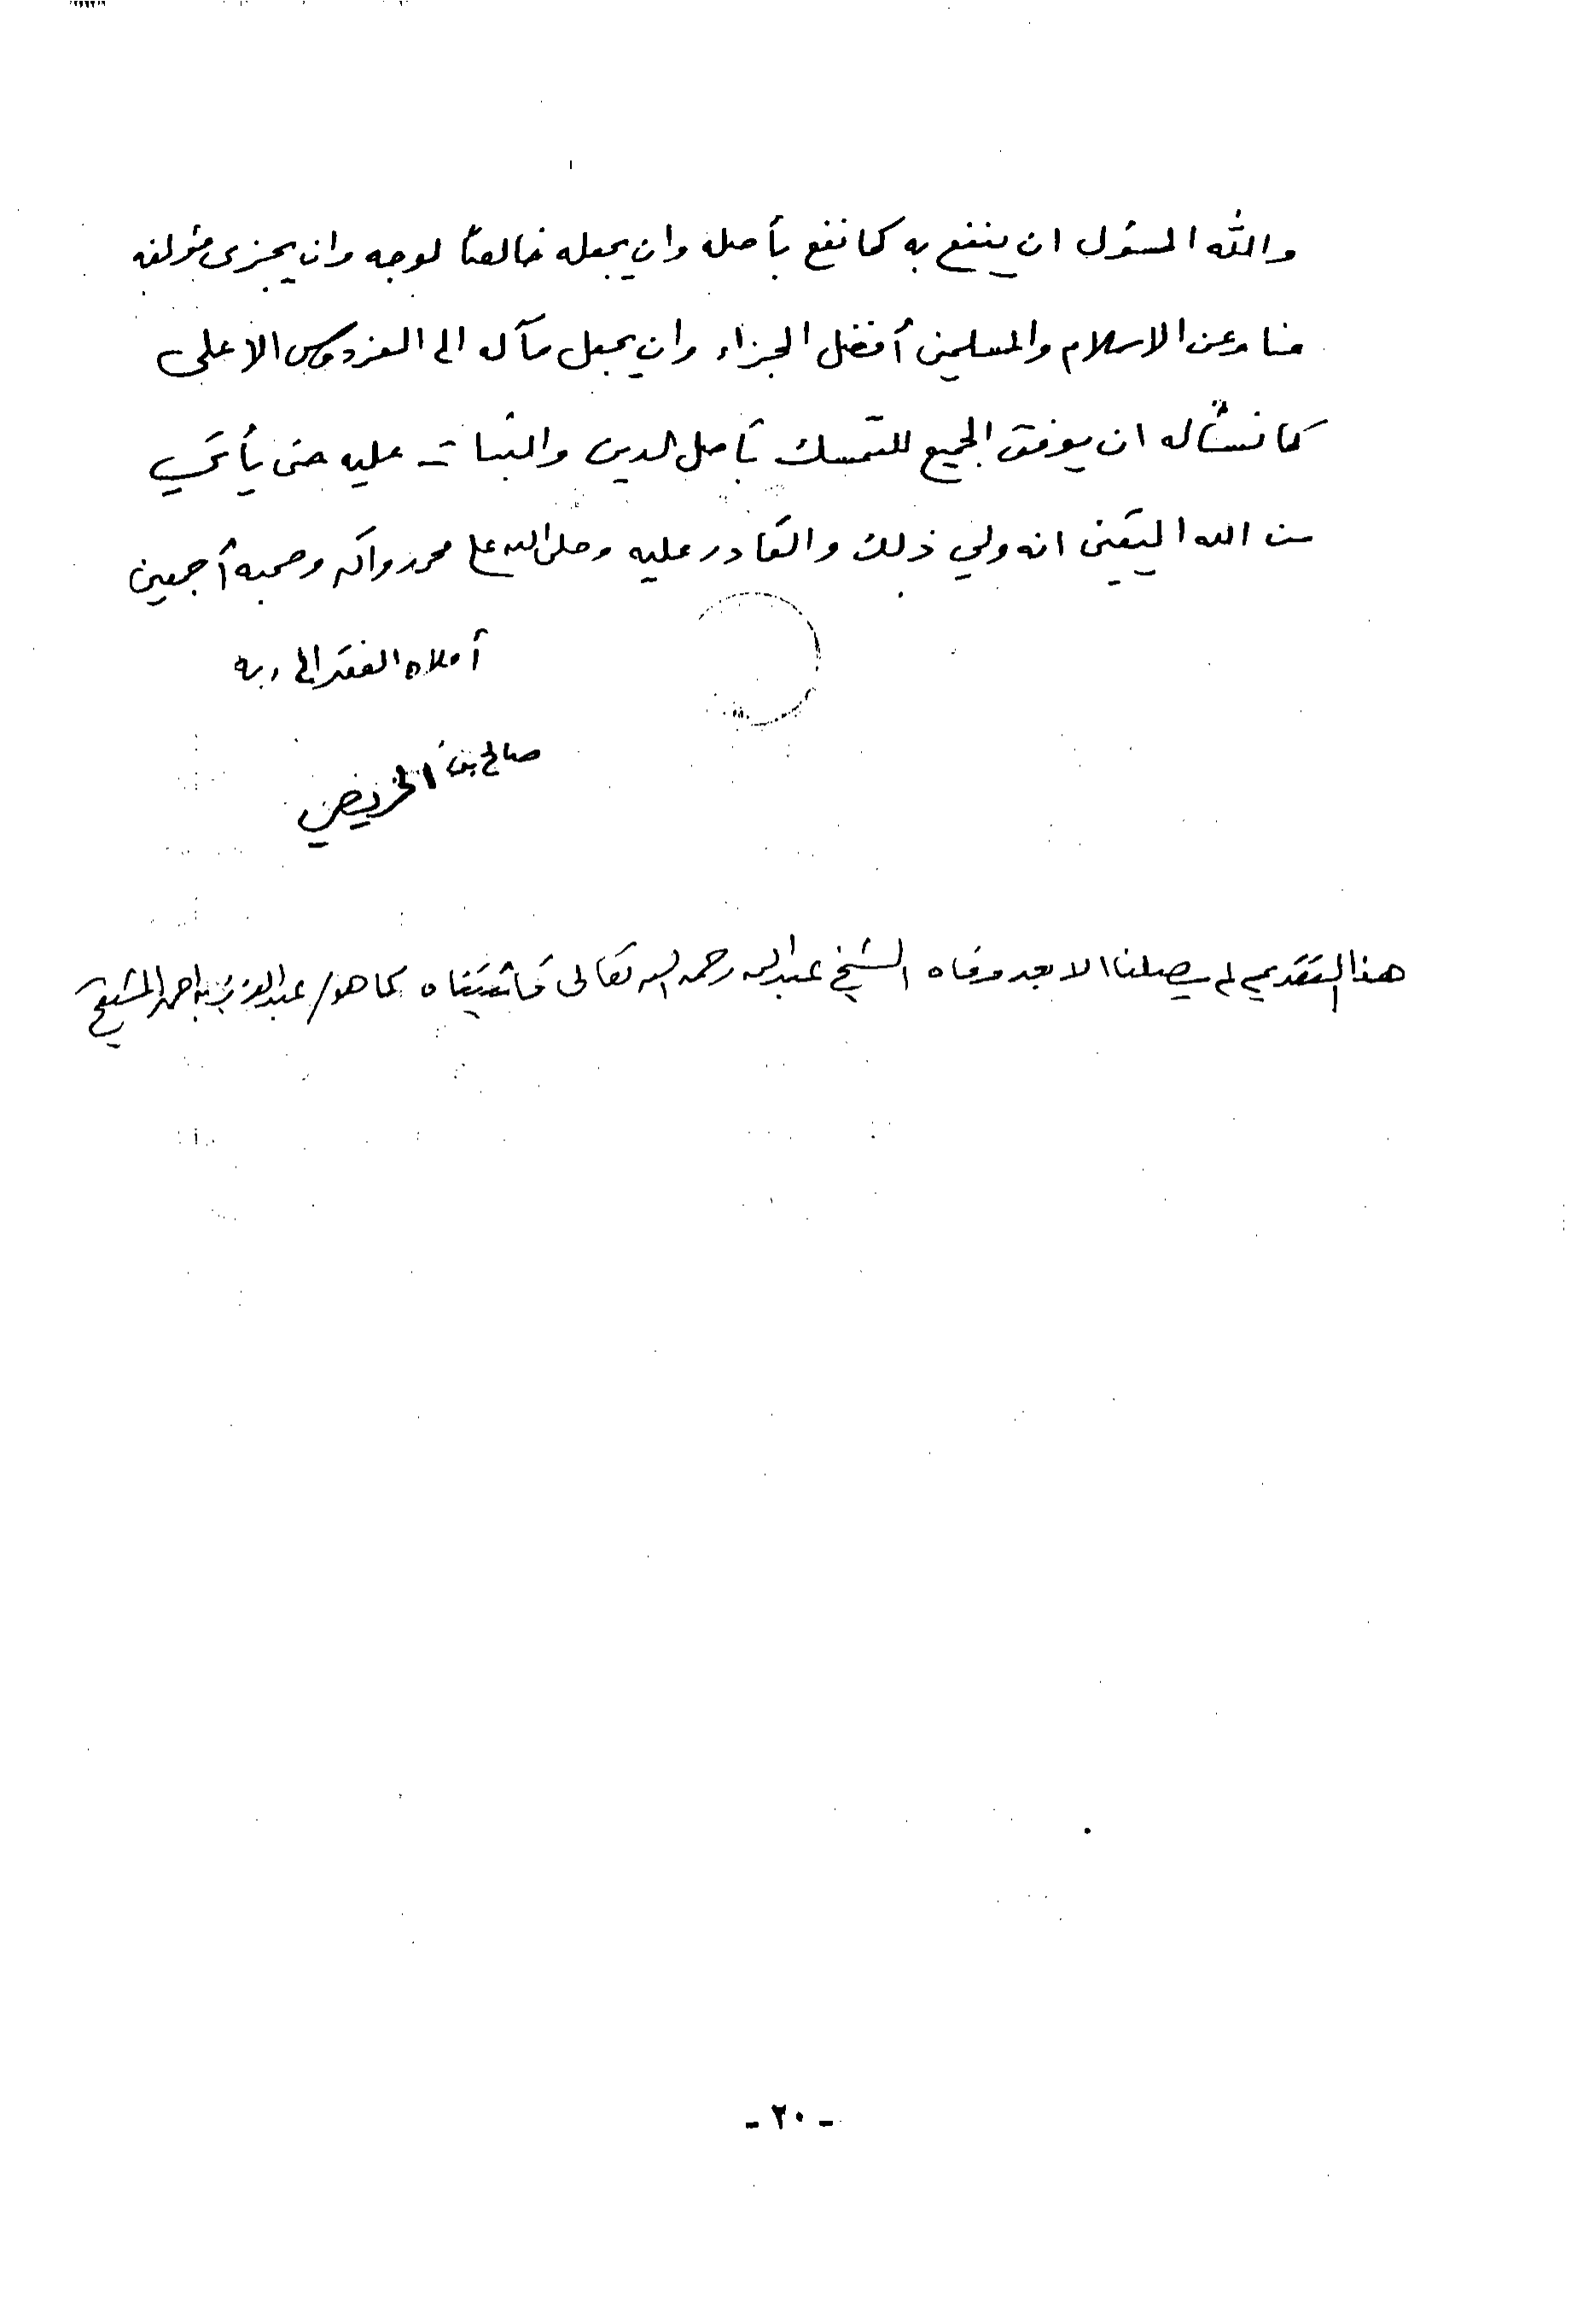 والله المسؤل ان ينفع به كما نفع بأصله وان يجعله خالصاً لوجه وان يجزى مؤلفه
منا وعن الاسلام والمسلمين أفضل الجزاء وان يجعل مآله الى الفردوس الاعلى
كما نسأله ان يوفق الجميع للتمسك بأصل الدين والثبات عليه حتى يأتي
من الله اليقين انه ولي ذلك والقادر عليه وصلى الله على محمد وآله وصحبه أجمعين
أملاه الفقير الى ربه
صالح بن الخريصي
هذا التقديم لم يصلنا الا بعد وفاه الشيخ عبدالله رحمه الله تعالى فأثبتناه كما هو/ عبدالعزيز بن احمد المشيقح
- ٢٠ -